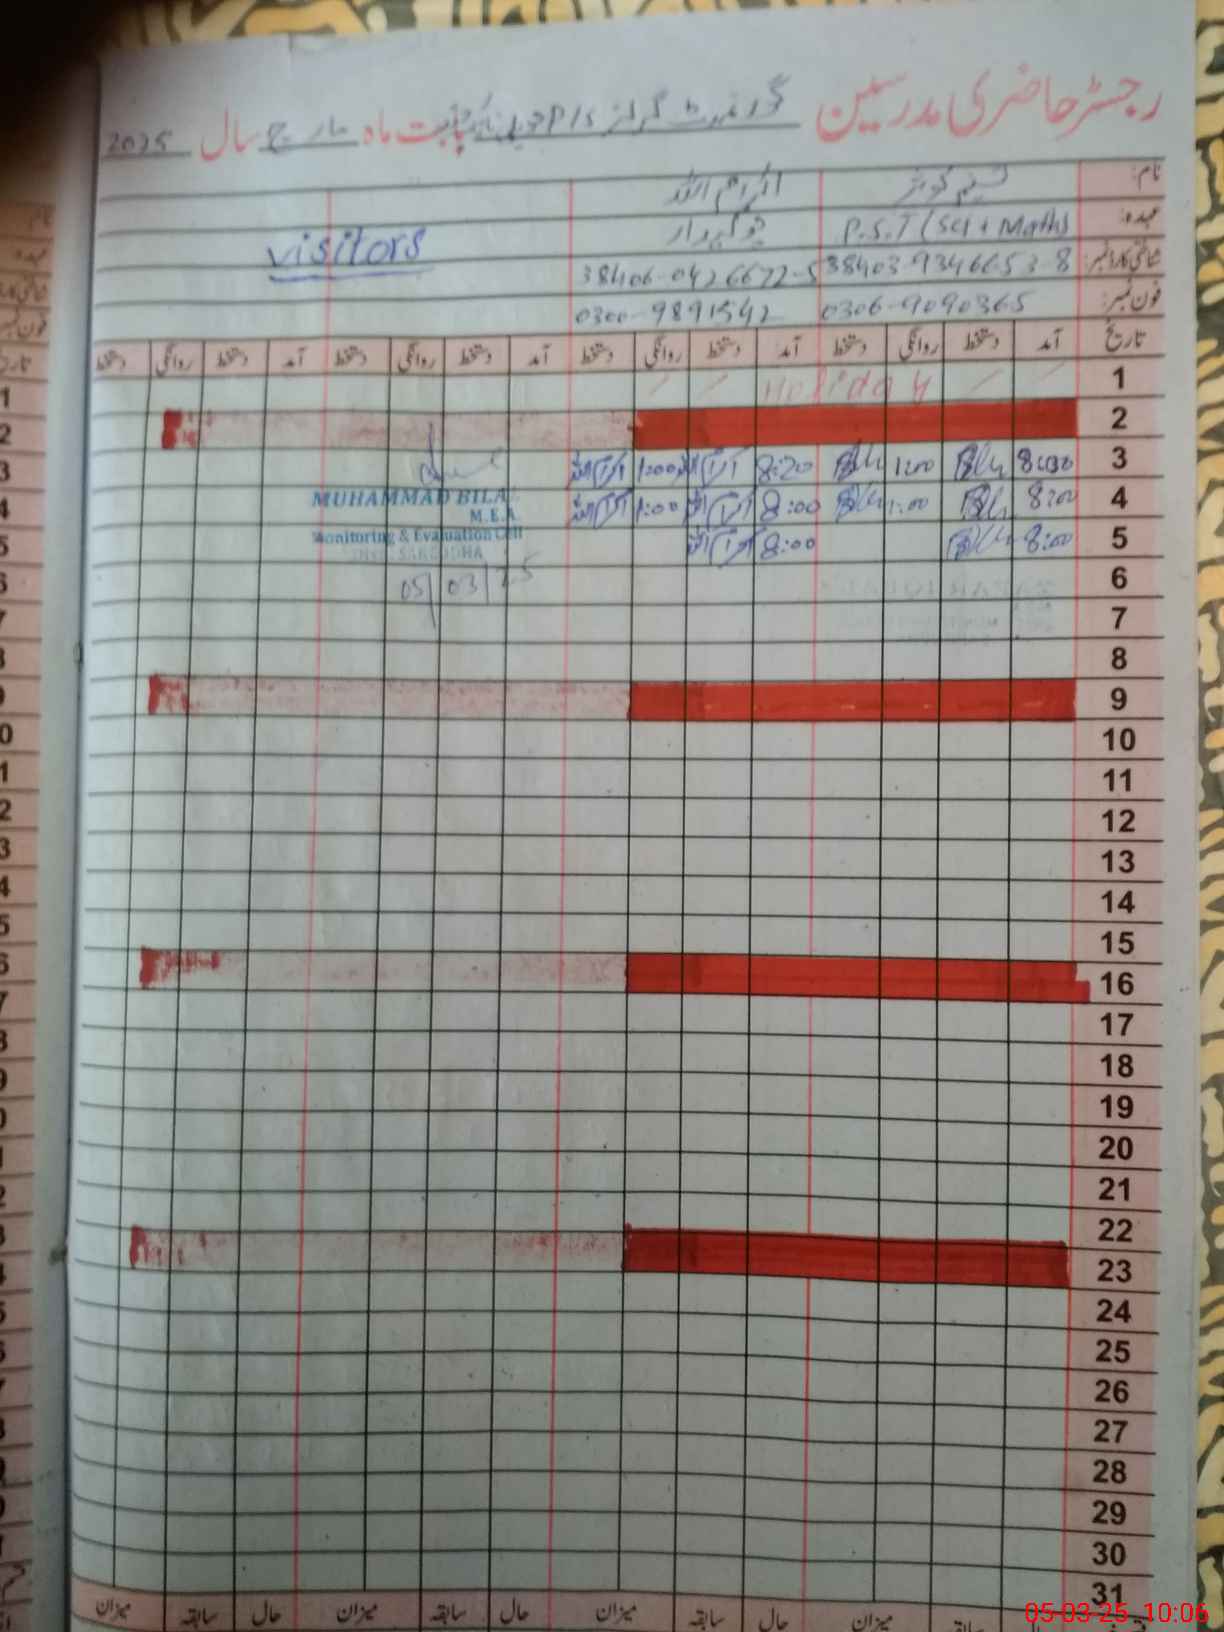 رجسٹر حاضری مدرسین گورنمنٹ گرلز P/S بابت ماہ مارچ سال 2025
نام: نسیم کوثر اکرام اللہ
عہدہ: P.S.T (Sci + Math) چوکیدار visitors
شناختی کارڈ نمبر: 38403-9346653-8 38406-0426672-5
فون نمبر: 0306-9090365 0300-9891542
تاریخ آمد دستخط روانگی دستخط آمد دستخط روانگی دستخط آمد دستخط روانگی دستخط آمد دستخط روانگی دستخط
1 Holiday
2
3 8:00 1:00 8:20 1:00
4 8:00 1:00 8:00 1:00
MUHAMMAD BILAL
M.E.A
Monitoring & Evaluation Cell
SARGODHA
5 8:00 8:00
6 05/03/25
7
8
9
10
11
12
13
14
15
16
17
18
19
20
21
22
23
24
25
26
27
28
29
30
31
حال سابقہ میزان حال سابقہ میزان حال سابقہ میزان حال سابقہ میزان
05-03-25 10:06